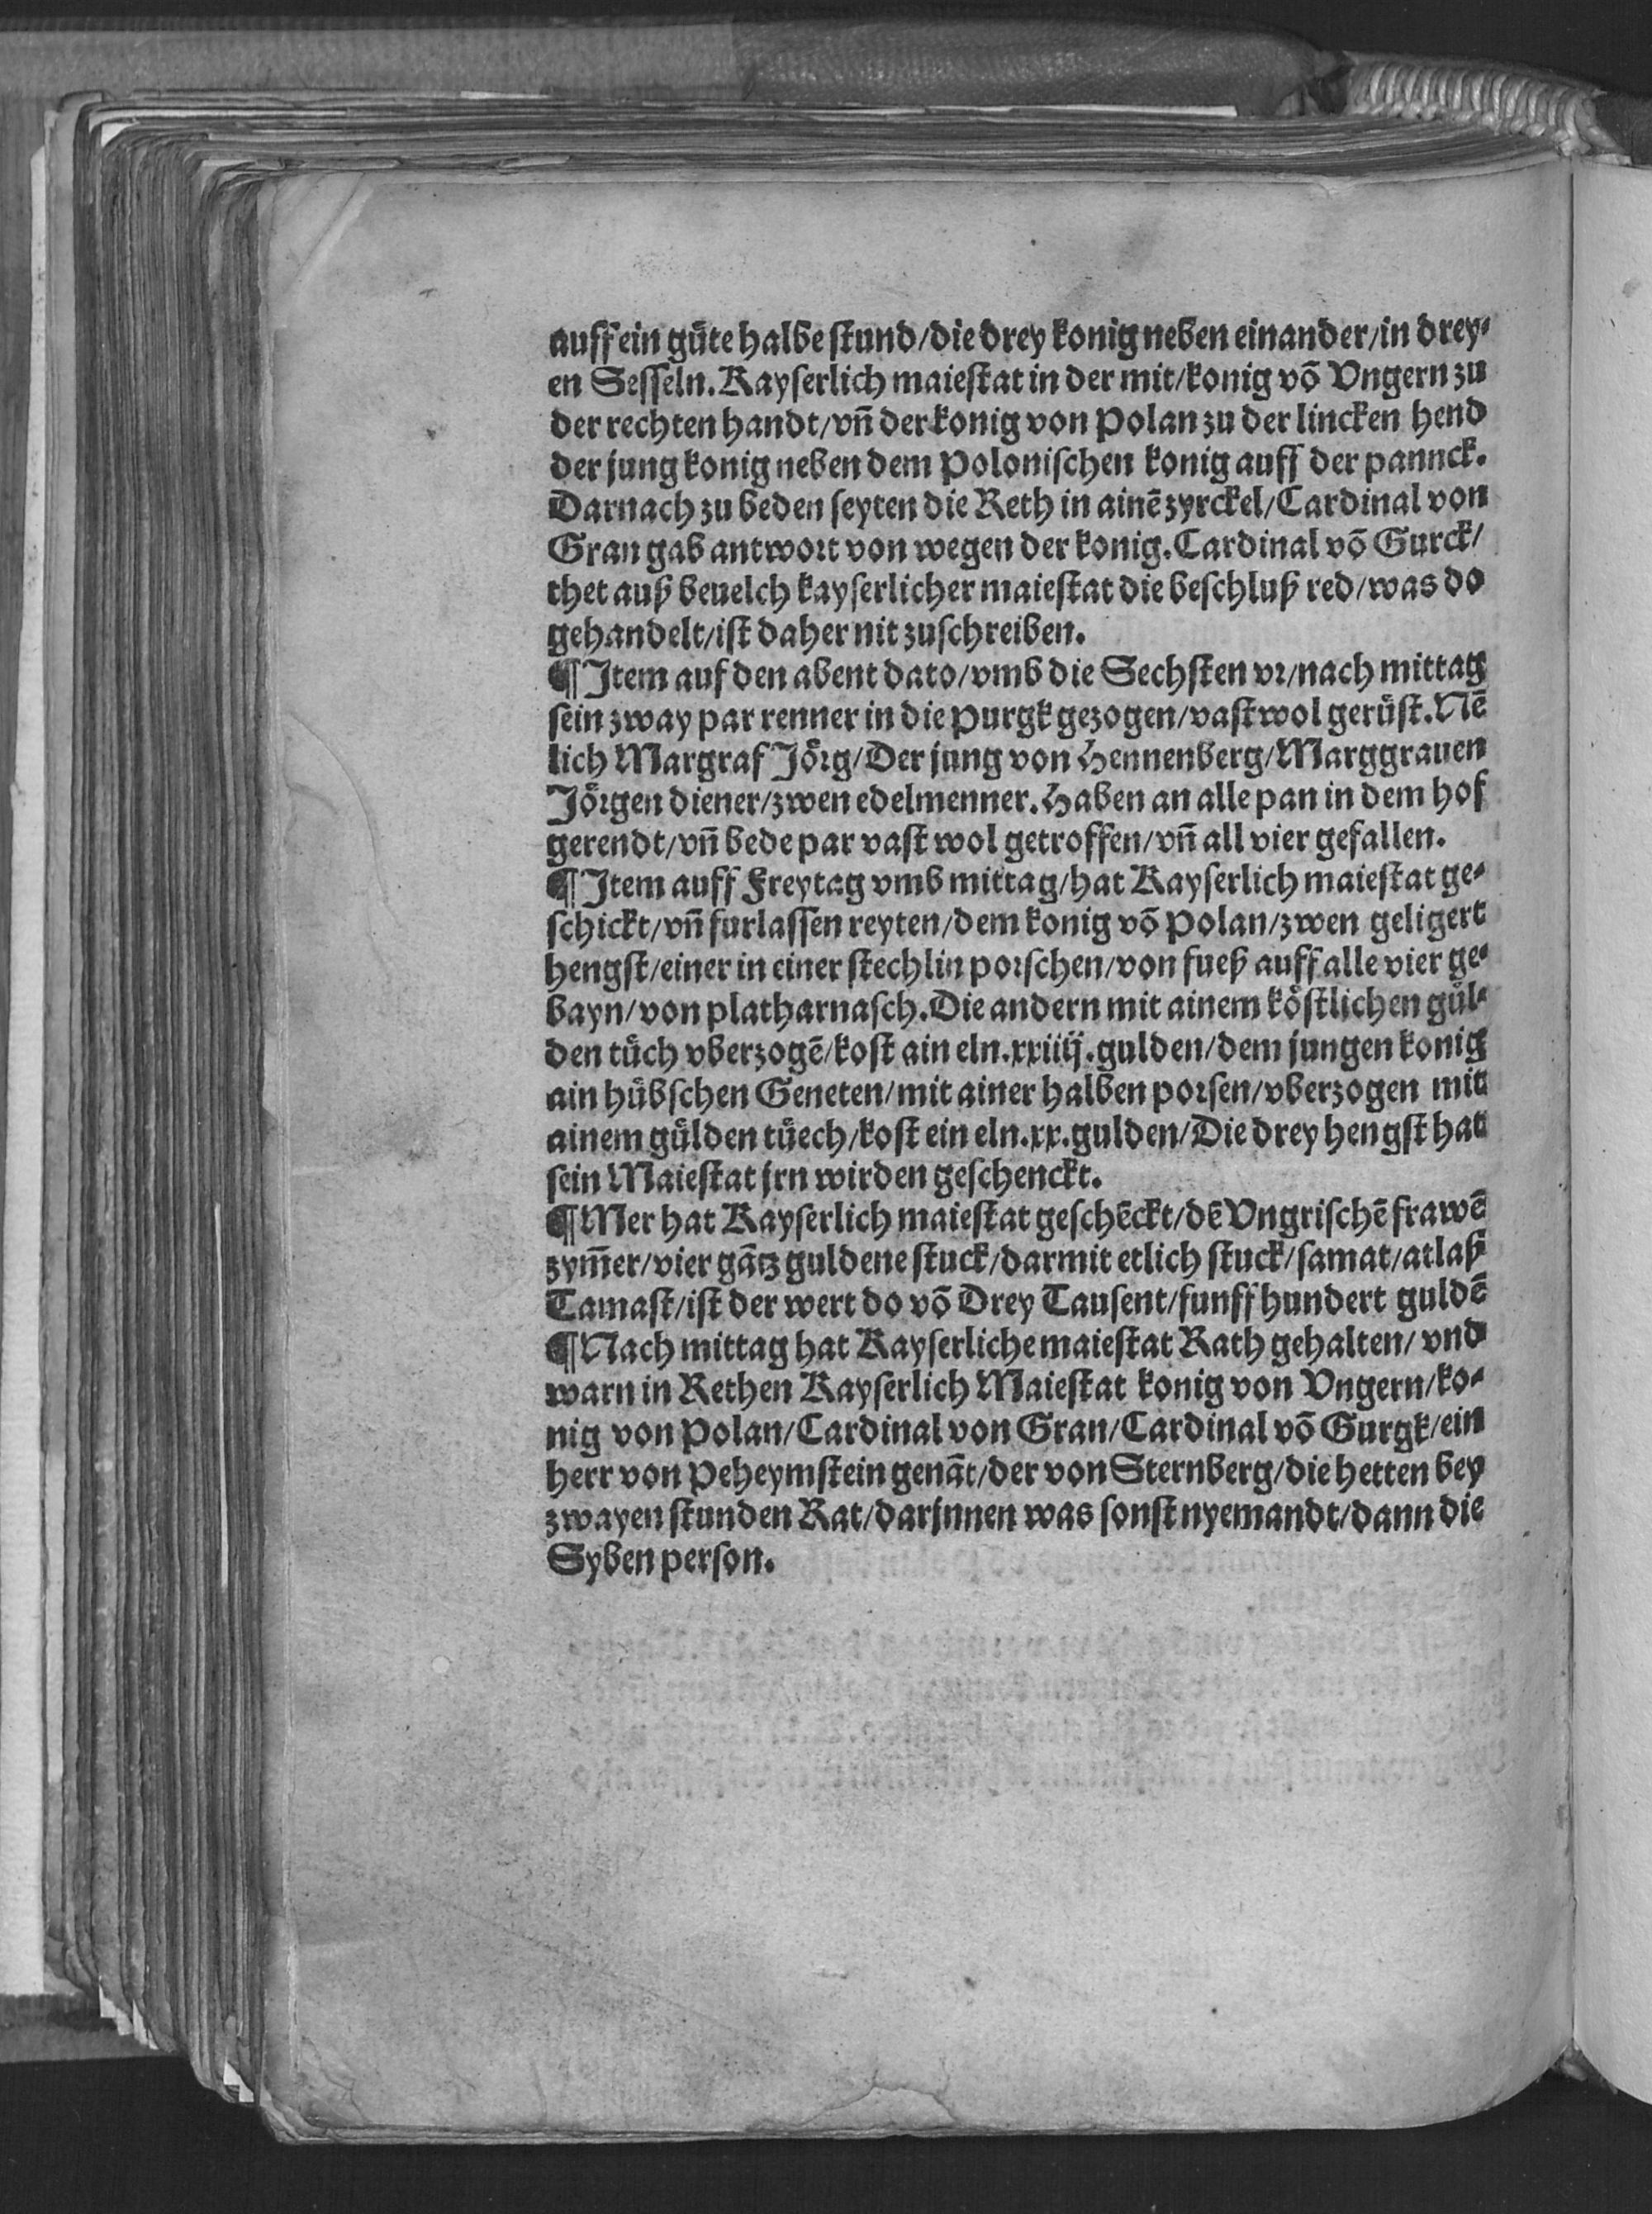 auff ein gůte halbe stund/die drey konig neben einander/in drey⸗
en Sesseln. Kayserlich maiestat in der mit/konig võ Vngern zu
der rechten handt/vñ der konig von Polan zu der lincken hend
der jung konig neben dem Polonischen konig auff der pannck.
Darnach zu beden seyten die Reth in ainẽ zyrckel/Cardinal von
Gran gab antwort von wegen der konig. Cardinal võ Gurck/
thet auß beuelch kayserlicher maiestat die beschluß red/was do
gehandelt/ist daher nit zuschreiben.
¶ Item auf den abent dato/vmb die Sechsten vr/nach mittag
sein zway par renner in die purgk gezogen/vast wol gerůst. Nẽ
lich Margraf Jörg/Der jung von Hennenberg/Marggrauen
Jörgen diener/zwen edelmenner. Haben an alle pan in dem hof
gerendt/vñ bede par vast wol getroffen/vñ all vier gefallen.
¶ Item auff Freytag vmb mittag/hat Kayserlich maiestat ge⸗
schickt/vñ furlassen reyten/dem konig võ Polan/zwen geligert
hengst/einer in einer stechlin porschen/von fueß auff alle vier ge⸗
bayn/von platharnasch. Die andern mit ainem köstlichen gůl⸗
den tůch vberzogẽ/kost ain eln. xxiiij. gulden/dem jungen konig
ain hůbschen Geneten/mit ainer halben porsen/vberzogen mit
ainem gůlden tůech/kost ein eln. xx. gulden/Die drey hengst hat
sein Maiestat jrn wirden geschenckt.
¶ Mer hat Kayserlich maiestat geschẽckt/dẽ Vngrischẽ frawẽ
zym̃er/vier gãtz guldene stuck/darmit etlich stuck/samat/atlaß
Tamast/ist der wert do võ Drey Tausent/funff hundert guldẽ
¶ Nach mittag hat Kayserliche maiestat Rath gehalten/ vnd
warn in Rethen Kayserlich Maiestat konig von Vngern/ko⸗
nig von Polan/Cardinal von Gran/Cardinal võ Gurgk/ein
herr von Peheymstein genãt/der von Sternberg/die hetten bey
zwayen stunden Rat/darjnnen was sonst nyemandt/dann die
Syben person.